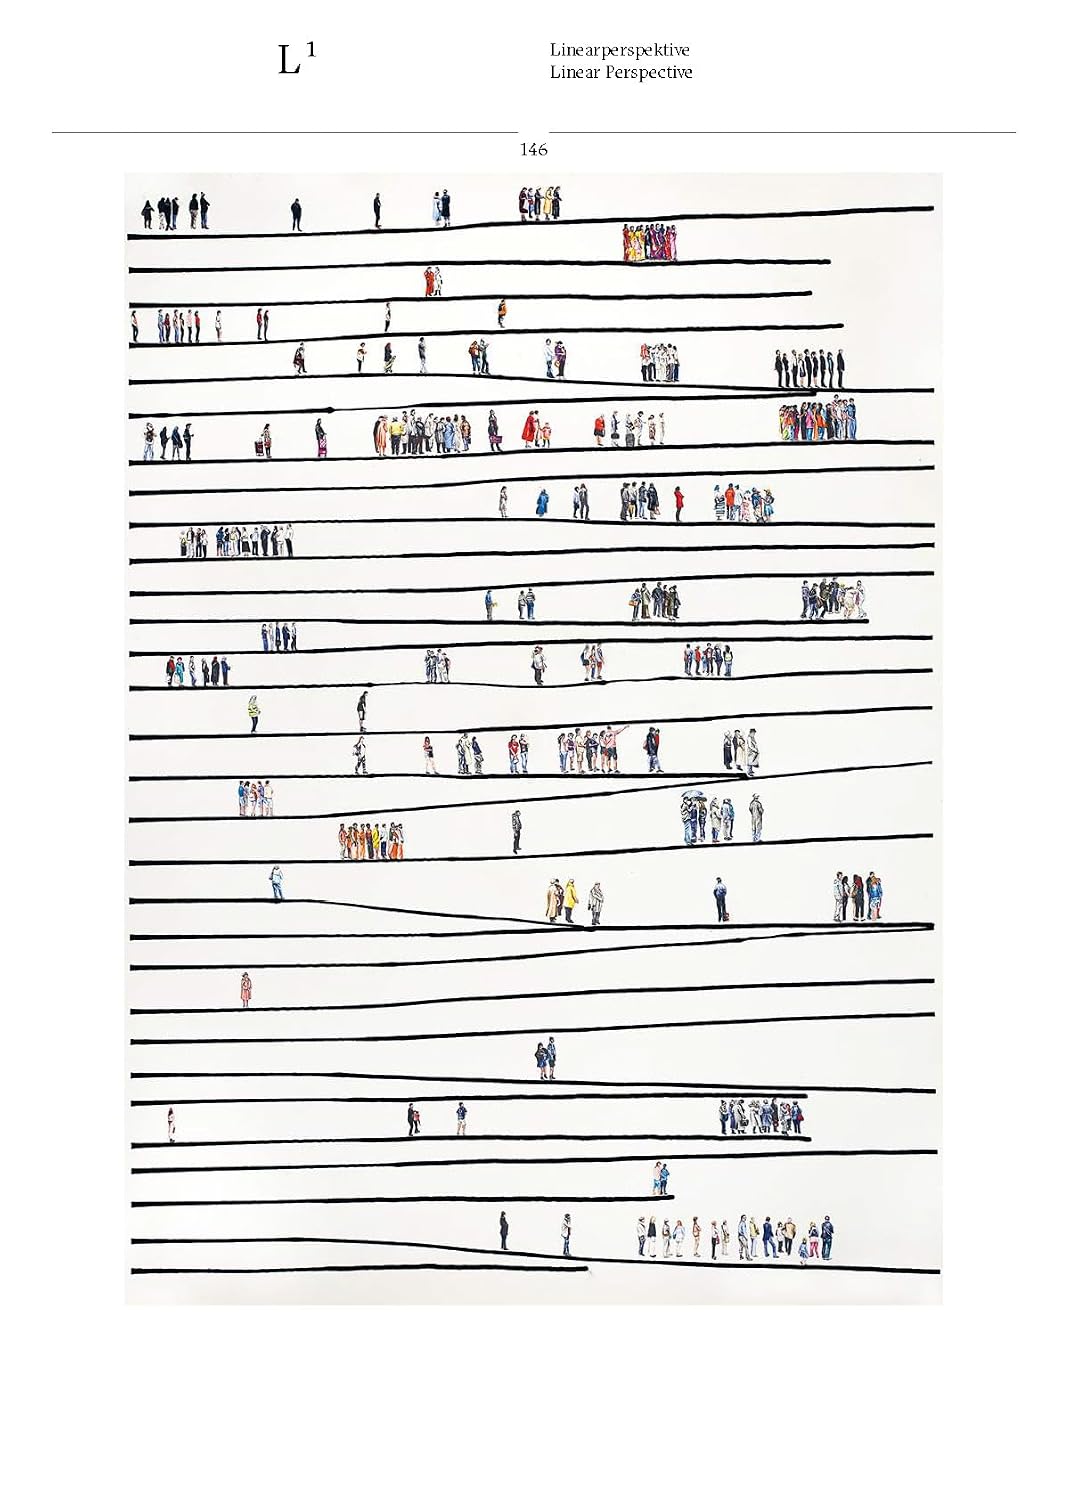 L¹
Linearperspektive
Linear Perspective
146